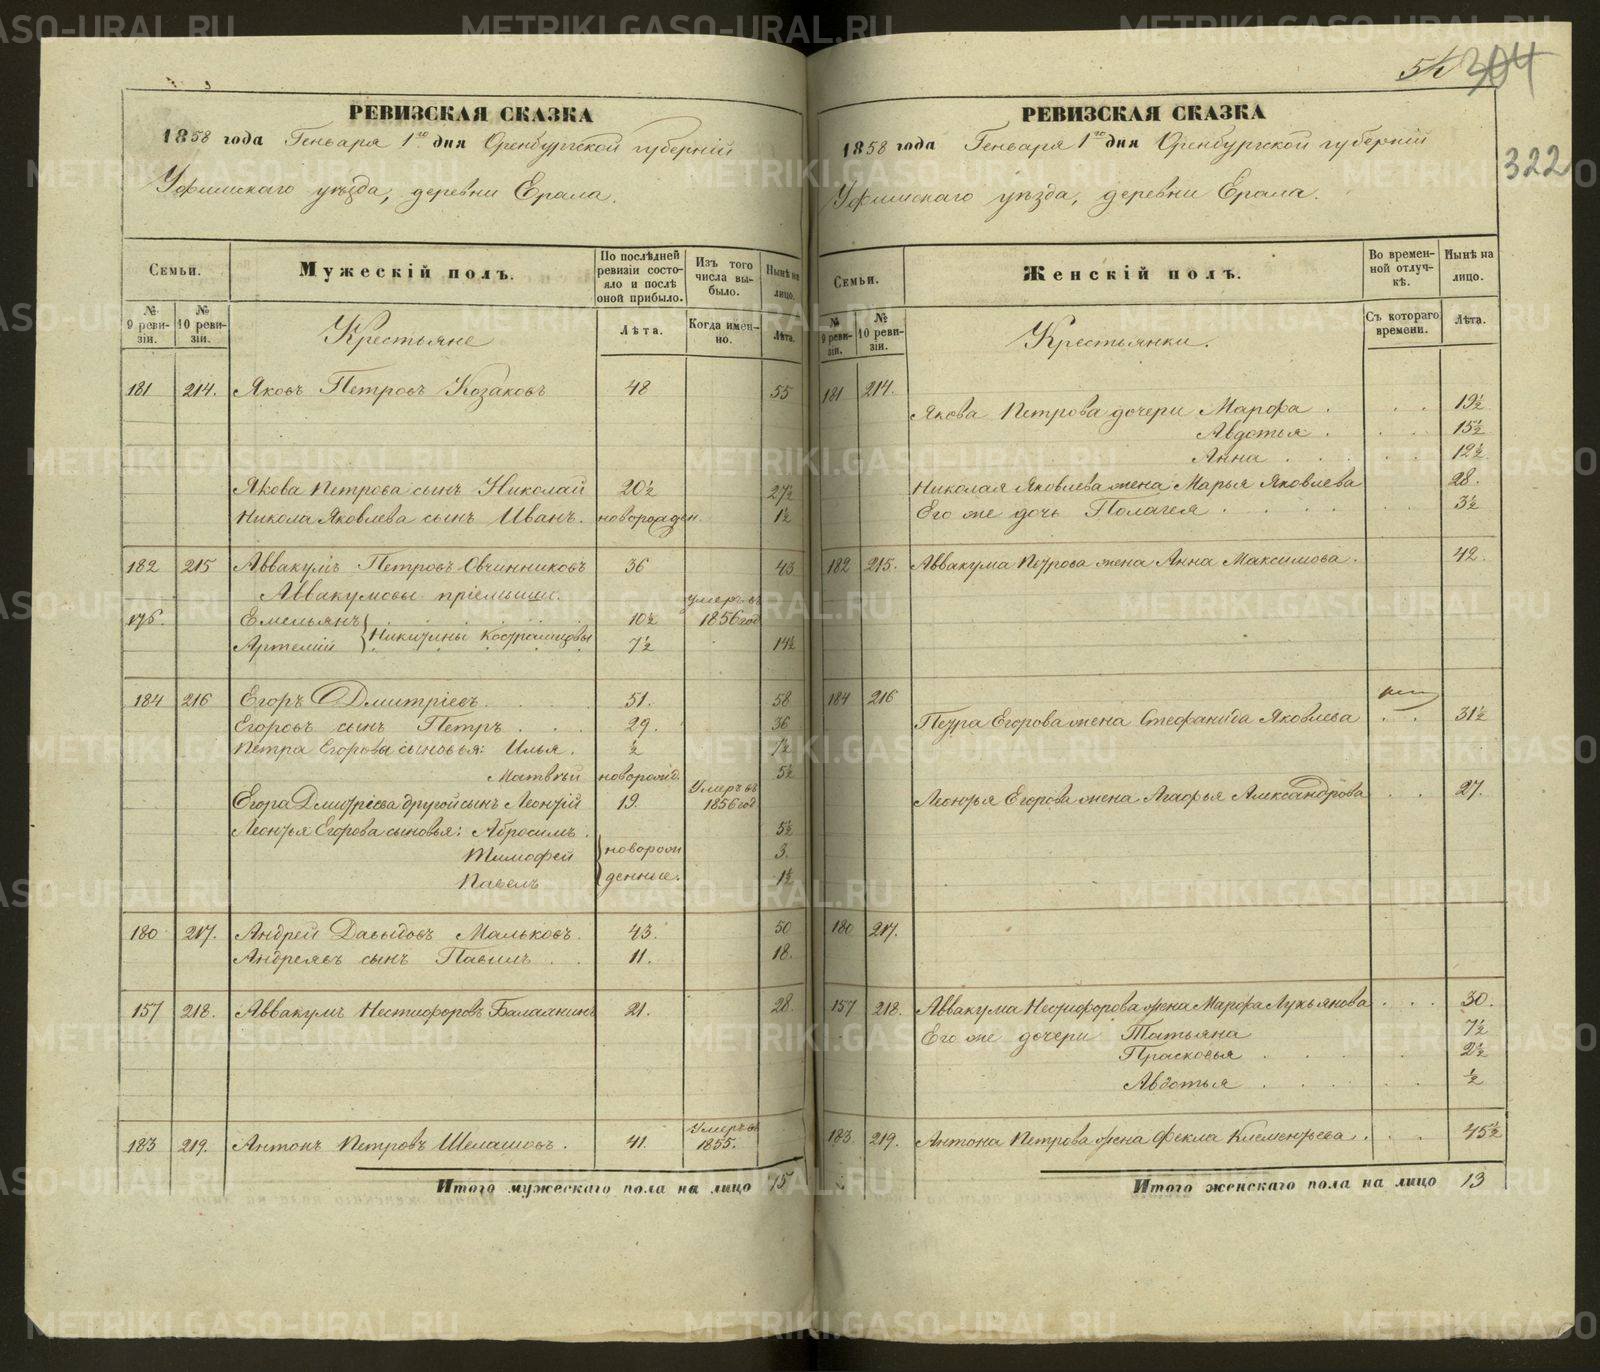 54 304
322
РЕВИЗСКАЯ СКАЗКА
1858 года Генваря 1го дня Оренбургской губерніи
Уфимскаго уѣзда, деревни Ерала.
Семьи.
Мужескій полъ.
По послѣдней ревизіи состояло и послѣ оной прибыло.
Изъ того числа выбыло.
Нынѣ на лицо.
№ 9 ревизіи.
№ 10 ревизіи.
Крестьяне
Лѣта.
Когда именно.
Лѣта.
181 214. Яковъ Петровъ Козаковъ 48 55
Якова Петрова сынъ Николай 20½ 27½
Никола Яковлева сынъ Иванъ. новорожден. 1½
182 215 Аввакумъ Петровъ Овчинниковъ 36 43
Аввакумовы пріемыши:
176. Емельянъ 10½ умеръ въ 1856 год
Артемій } Никитины Костромцовы 7½ 14½
184 216 Егоръ Дмитріевъ 51. 58
Егоровъ сынъ Петръ 29. 36
Петра Егоровы сыновья: Илья. ½ 7½
Матвѣй новорожд. 5½
Егора Дмитріева другой сынъ Леонтій 19. Умеръ въ 1856 год
Леонтья Егорова сыновья: Абросимъ. 5½
Тимофей } новорож 3.
Павелъ денные. 1½
180 217. Андрей Давыдовъ Мальковъ. 43. 50
Андреевъ сынъ Павелъ 11. 18.
157 218. Аввакумъ Нестифоровъ Балалнинъ 21. 28
183 219. Антонъ Петровъ Шелашовъ. 41. Умеръ въ 1855.
Итого мужескаго пола на лицо 15
РЕВИЗСКАЯ СКАЗКА
1858 года Генваря 1го дня Оренбургской губерніи
Уфимскаго уѣзда, деревни Ерала.
Семьи.
Женскій полъ.
Во временной отлучкѣ.
Нынѣ на лицо.
№ 9 ревизіи.
№ 10 ревизіи.
Крестьянки.
Съ котораго времени.
Лѣта.
181 214.
Якова Петрова дочери Марфа 19½
Авдотья 15½
Анна 12½
Николая Яковлева жена Марья Яковлева 28.
Его же дочь Полагея 3½
182 215. Аввакума Петрова жена Анна Максимова. 42.
184 216
Петра Егорова жена Стефанида Яковлева 31½
Леонтья Егорова жена Агафья Александрова 27.
180 217.
157 218. Аввакума Нестифорова жена Марфа Лукьянова 30.
Его же дочери Татьяна 7½
Прасковья 2½
Авдотья ½
183. 219. Антона Петрова жена Фекла Клементьева. 45½
Итого женскаго пола на лицо 13
METRIKI.GASO-URAL.RU